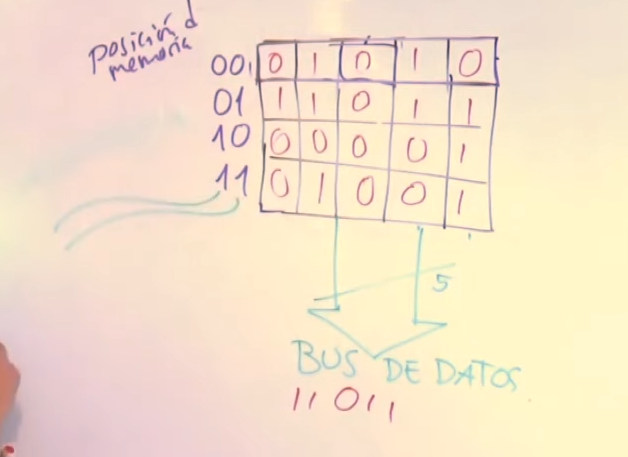 posición d
memoria
00 0 1 0 1 0
01 1 1 0 1 1
10 0 0 0 0 1
11 0 1 0 0 1
5
BUS DE DATOS
11011